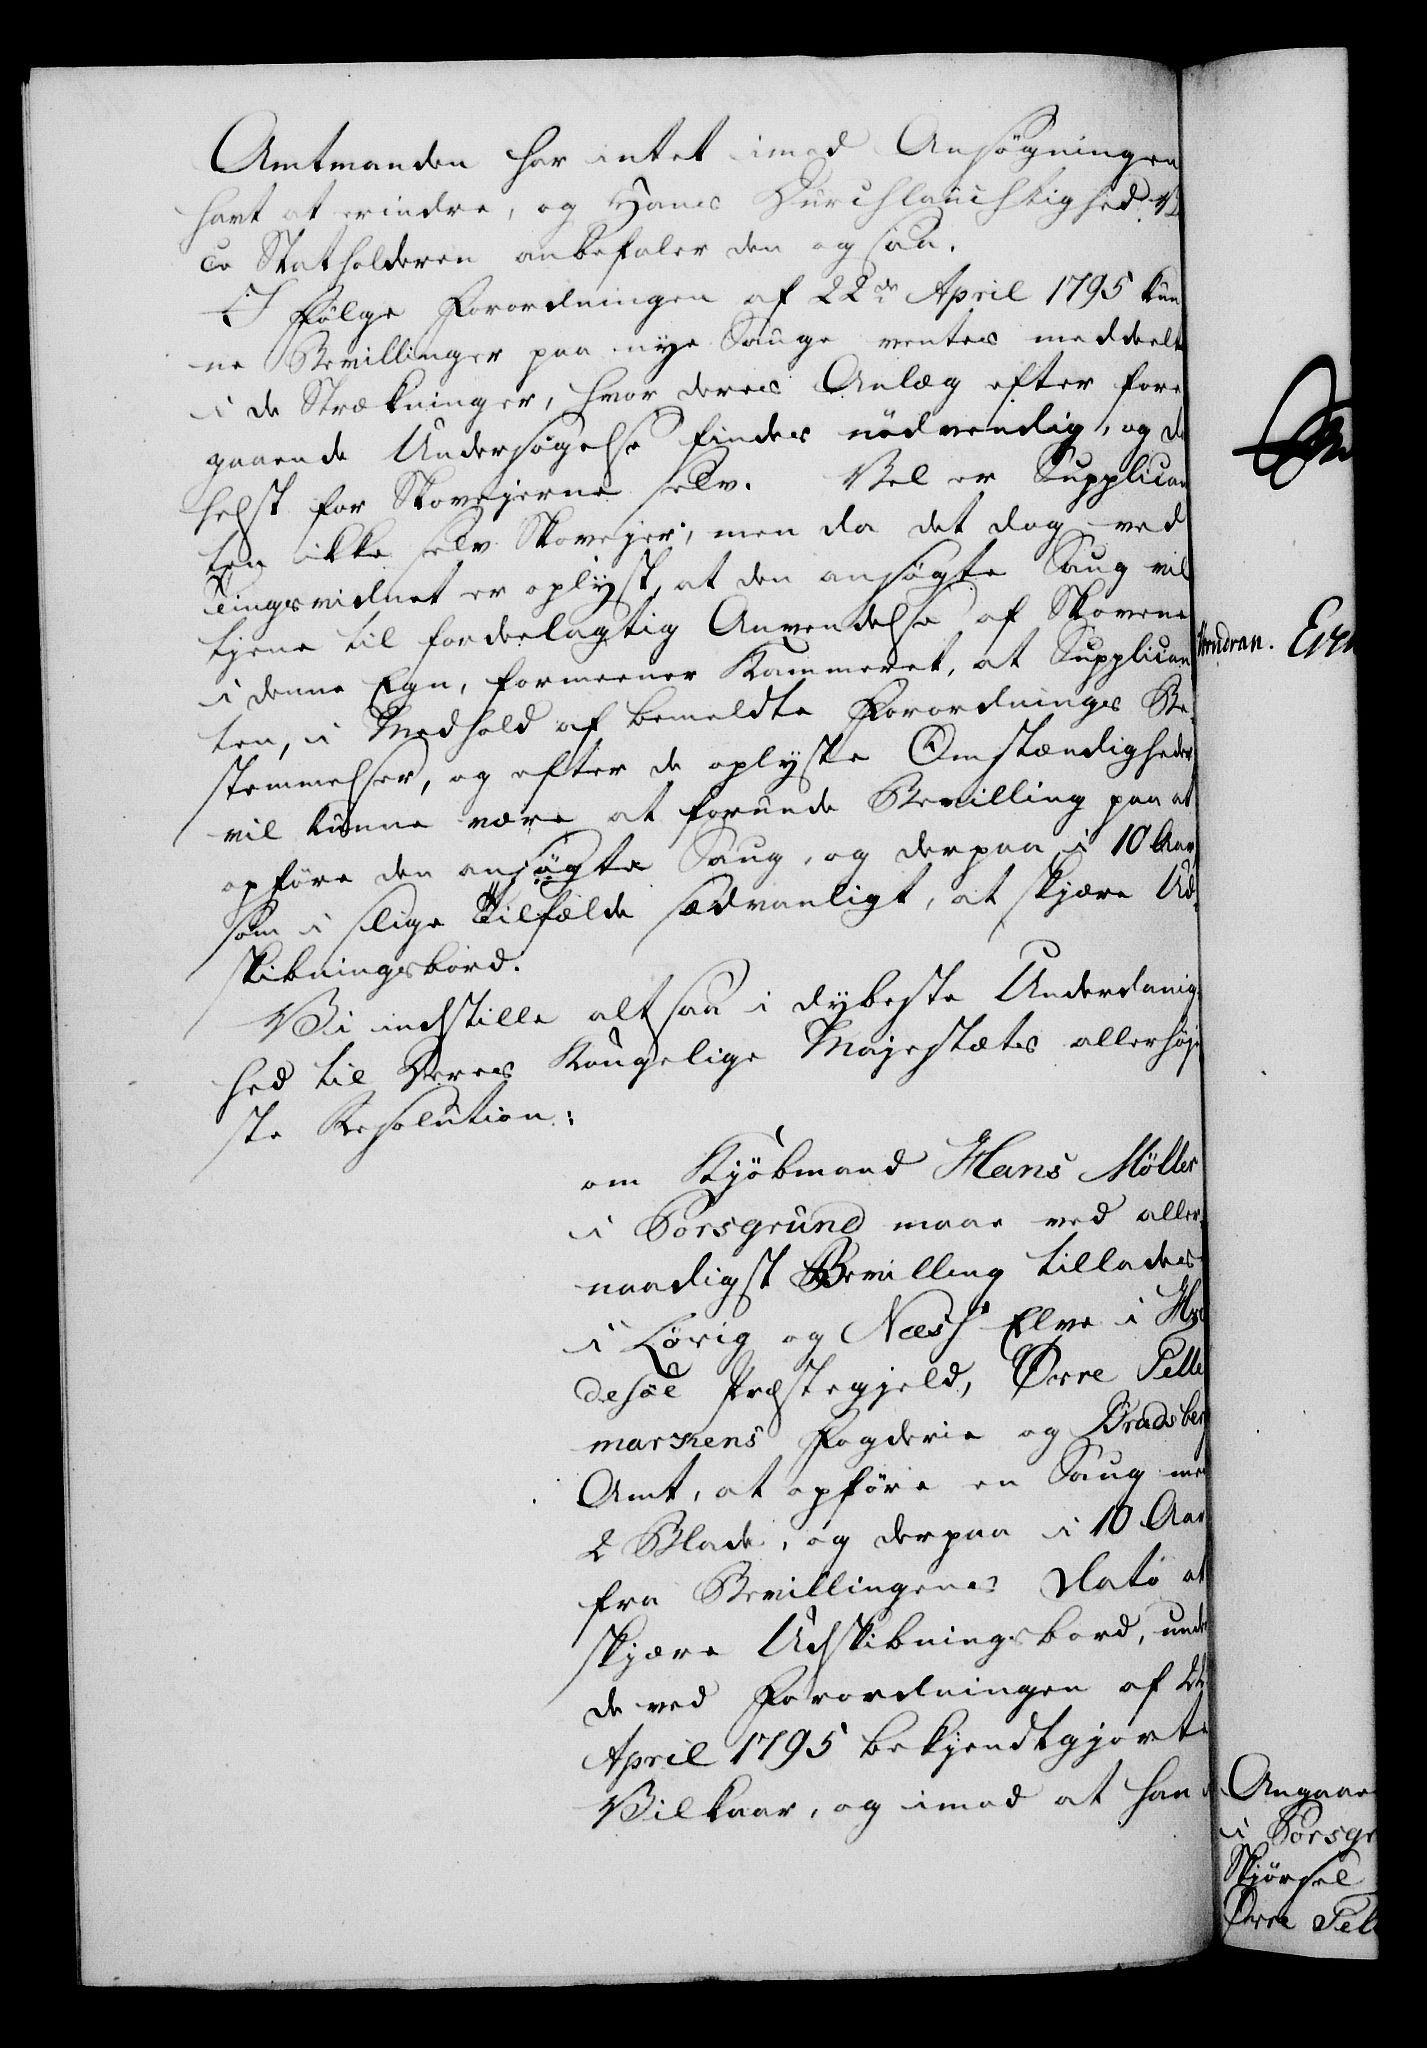 Amtmanden har intet imod Ansøgningen
havt at erindre, og Hans Durchlauchtighed Vi
ce Statholderen anbefaler den ogsaa.
I Følge Forordningen af 22de April 1795 kun
ne Bevillinger paa nye Sauge ventes meddeelte
i de Strækninger, hvor deres Anlæg efter fore
gaaende Undersøgelse findes nødvendig, og da
helst for Skovejerne selv. Vel er Supplican
ten ikke selv Skovejer, men da det dog ved
Tingsvidnet er oplyst, at den ansøgte Saug vil
tjene til fordeelagtig Anvendelse af Skovene
i denne Egn, formeener Kammeret, at Supplican
ten, i Medhold af bemeldte Forordnings Be-
stemmelser, og efter de oplyste Omstændigheder
vil kunne være at forunde Bevilling paa at
opføre den ansøgte Saug, og derpaa i 10 Aar,
som i slige Tilfælde sædvanligt, at skjære Ud-
skibningsbord.
Vi indstille altsaa i dybeste Underdanig-
hed til Deres Kongelige Majestæts allerhøje
ste Resolution:
om Kjøbmand Hans Möller
i Porsgrund maae ved aller-
naadigst Bevilling tillades
i Lörig og Næss Elve i Hvi
desöe Præstegjeld, Øvre Telle
markens Fogderie og Bradsberg
Amt, at opføre en Saug med
2 Blade, og derpaa i 10 Aar
fra Bevillingens Dato at
skjære Udskibningsbord, under
de ved Forordningen af 22
April 1795 bekjendtgjorte
Vilkaar, og imod at han
Angaae
i Porsgr
Skjørsel
Øvre Tel